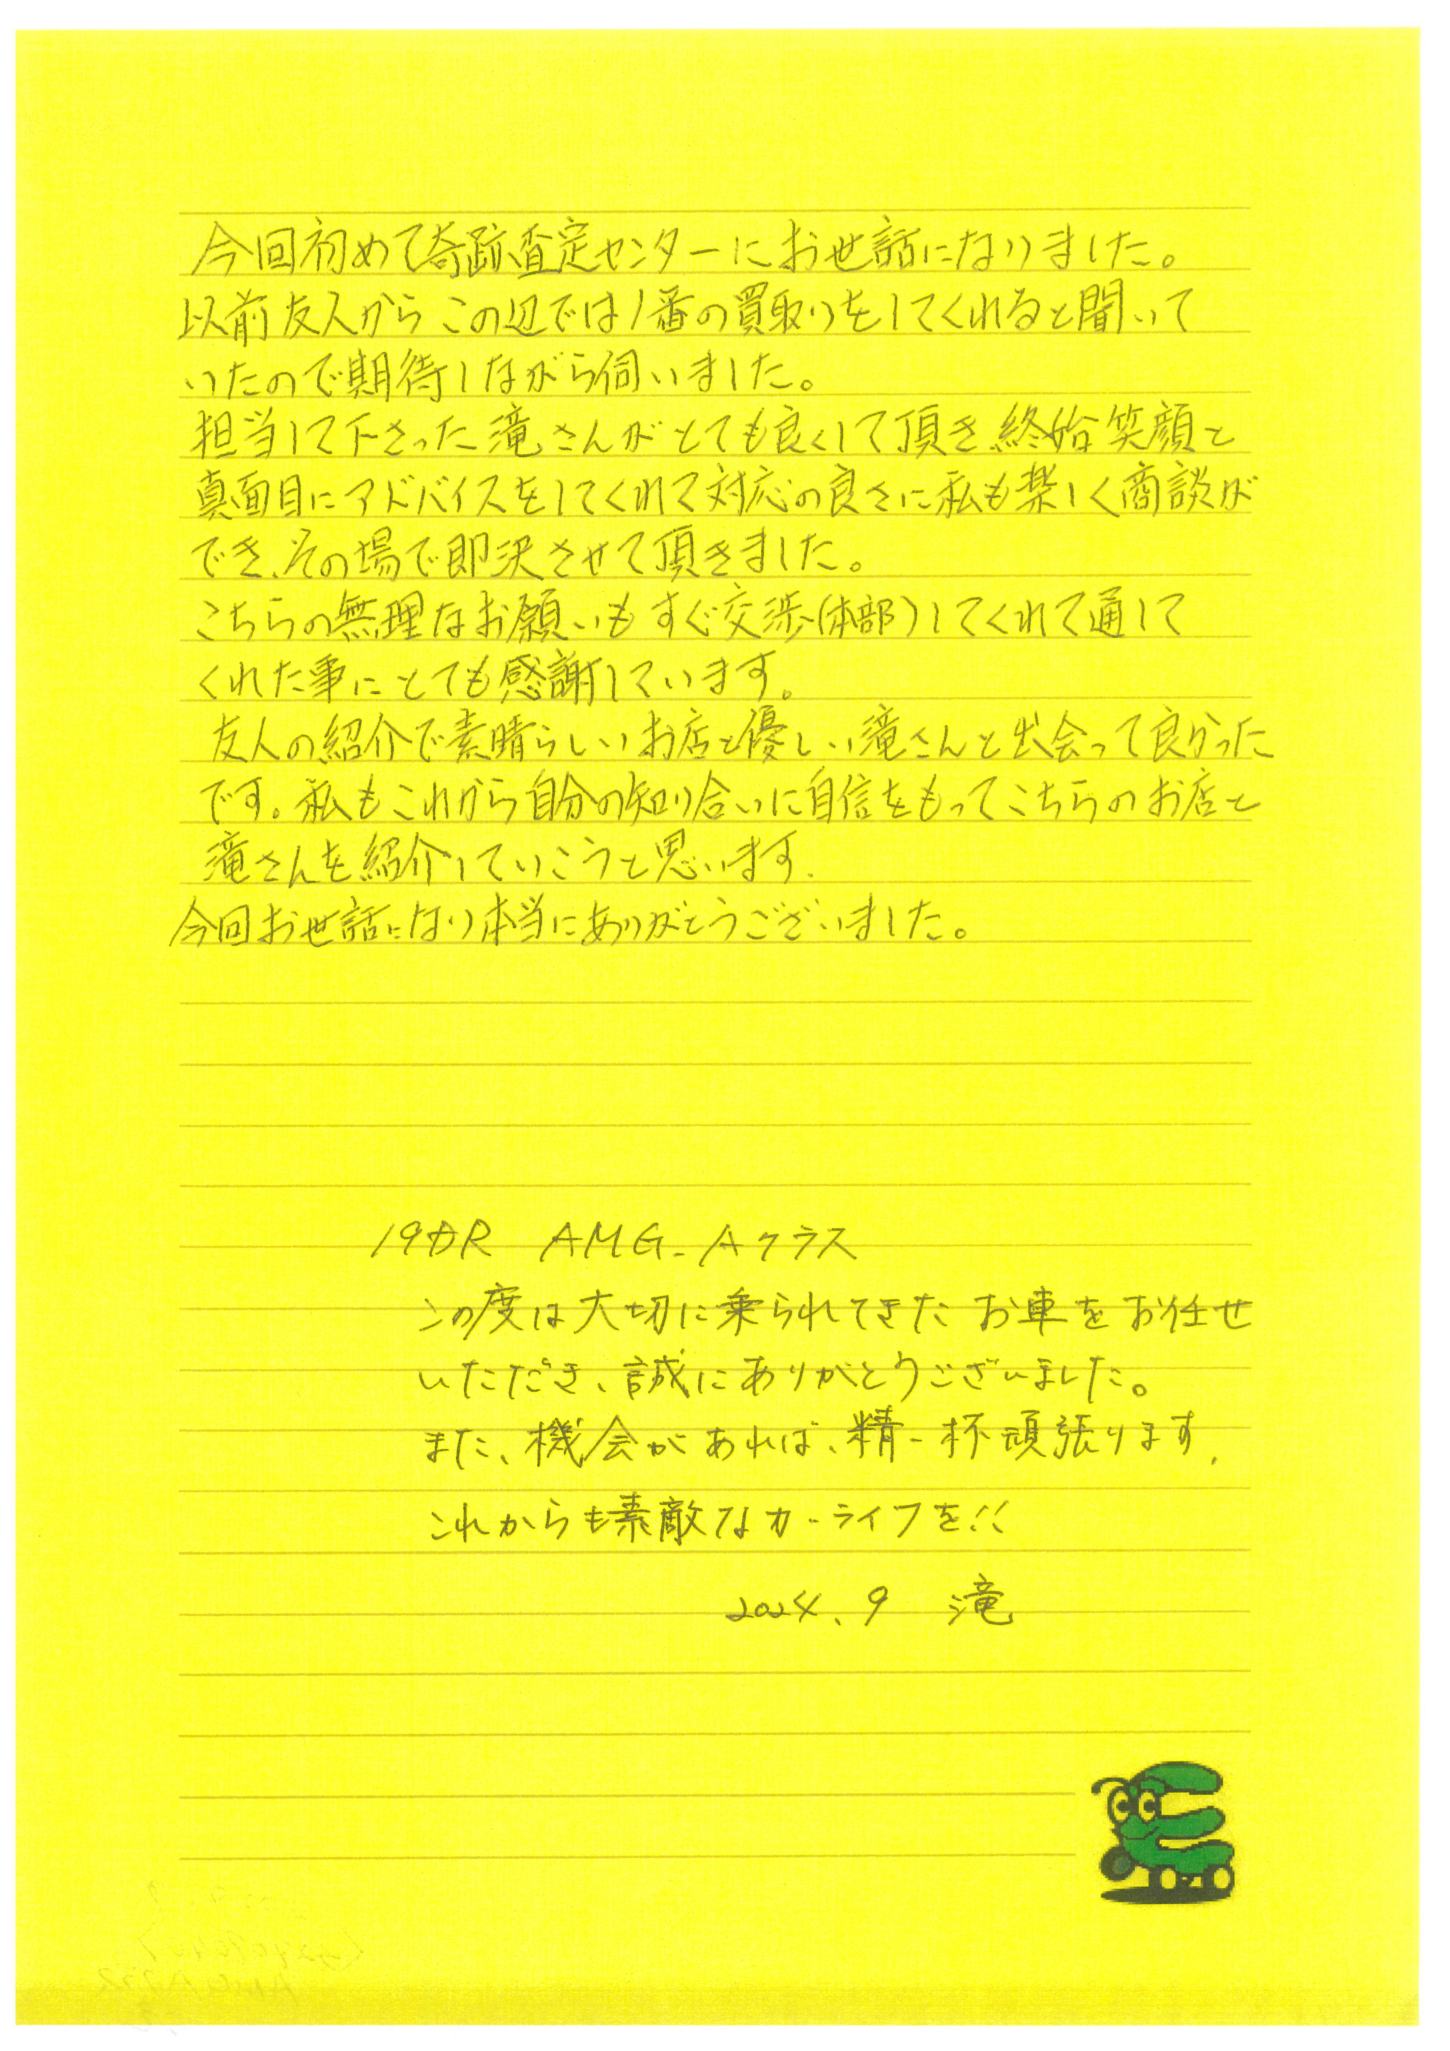 今回初めて奇跡査定センターにお世話になりました。
以前友人からこの辺では1番の買取りをしてくれると聞いて
いたので期待しながら伺いました。
担当して下さった滝さんがとても良くして頂き終始笑顔と
真面目にアドバイスをしてくれて対応の良さに私も楽しく商談が
でき、その場で即決させて頂きました。
こちらの無理なお願いもすぐ交渉(本部)してくれて通して
くれた事にとても感謝しています。
友人の紹介で素晴らしいお店と優しい滝さんと出会って良かった
です。私もこれから自分の知り合いに自信をもってこちらのお店と
滝さんを紹介していこうと思います.
今回お世話になり本当にありがとうございました。
AMG-Aクラス
この度は大切に乗られてきたお車をお任せ
いただき、誠にありがとうございました。
また、機会があれば、精一杯頑張ります.
これからも素敵なカーライフを!!
2024.9 滝